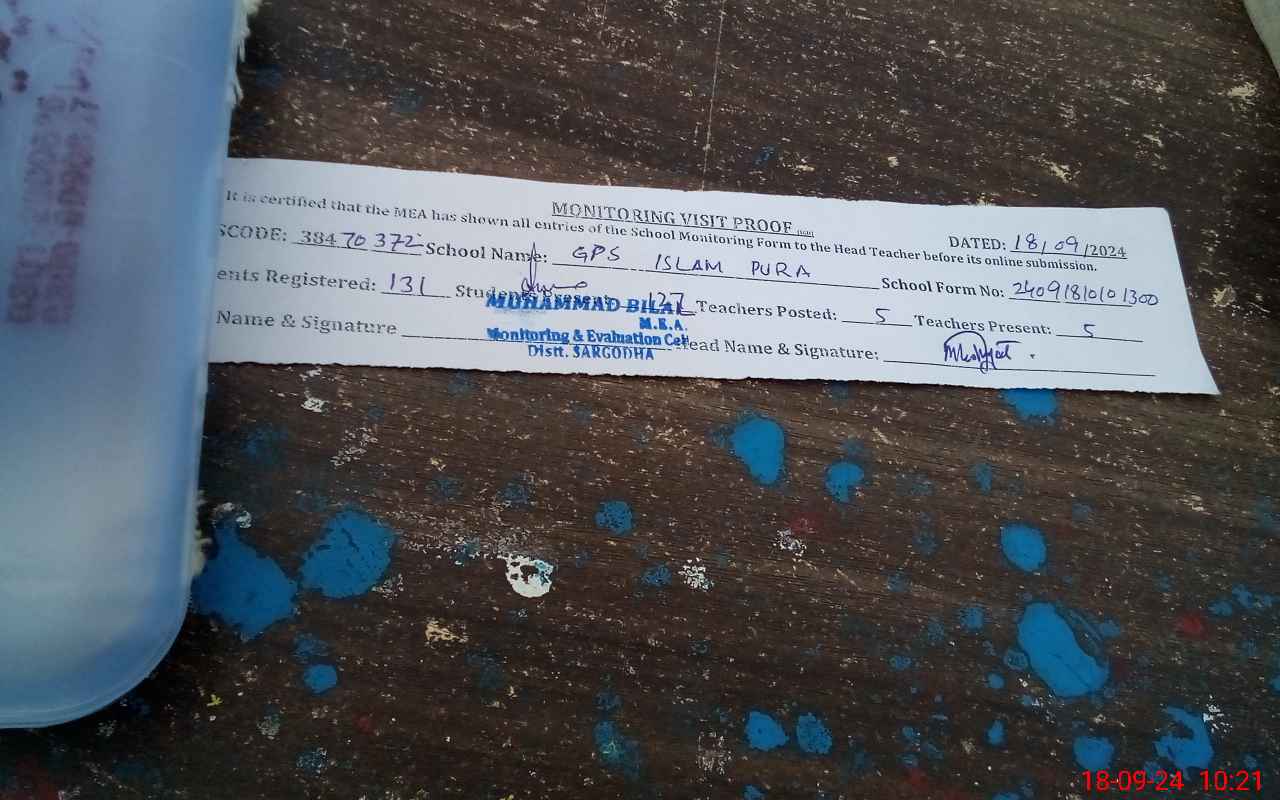 MONITORING VISIT PROOF
It is certified that the MEA has shown all entries of the School Monitoring Form to the Head Teacher before its online submission.
DATED: 18/09/2024
SCODE: 38470372 School Name: GPS ISLAM PURA School Form No:
ents Registered: 131 Students Present 127 Teachers Posted: 5 Teachers Present: 5
Name & Signature Head Name & Signature:
MUHAMMAD BILAL
M.E.A.
Monitoring & Evaluation Cell
Distt. SARGODHA
18-09-24 10:21